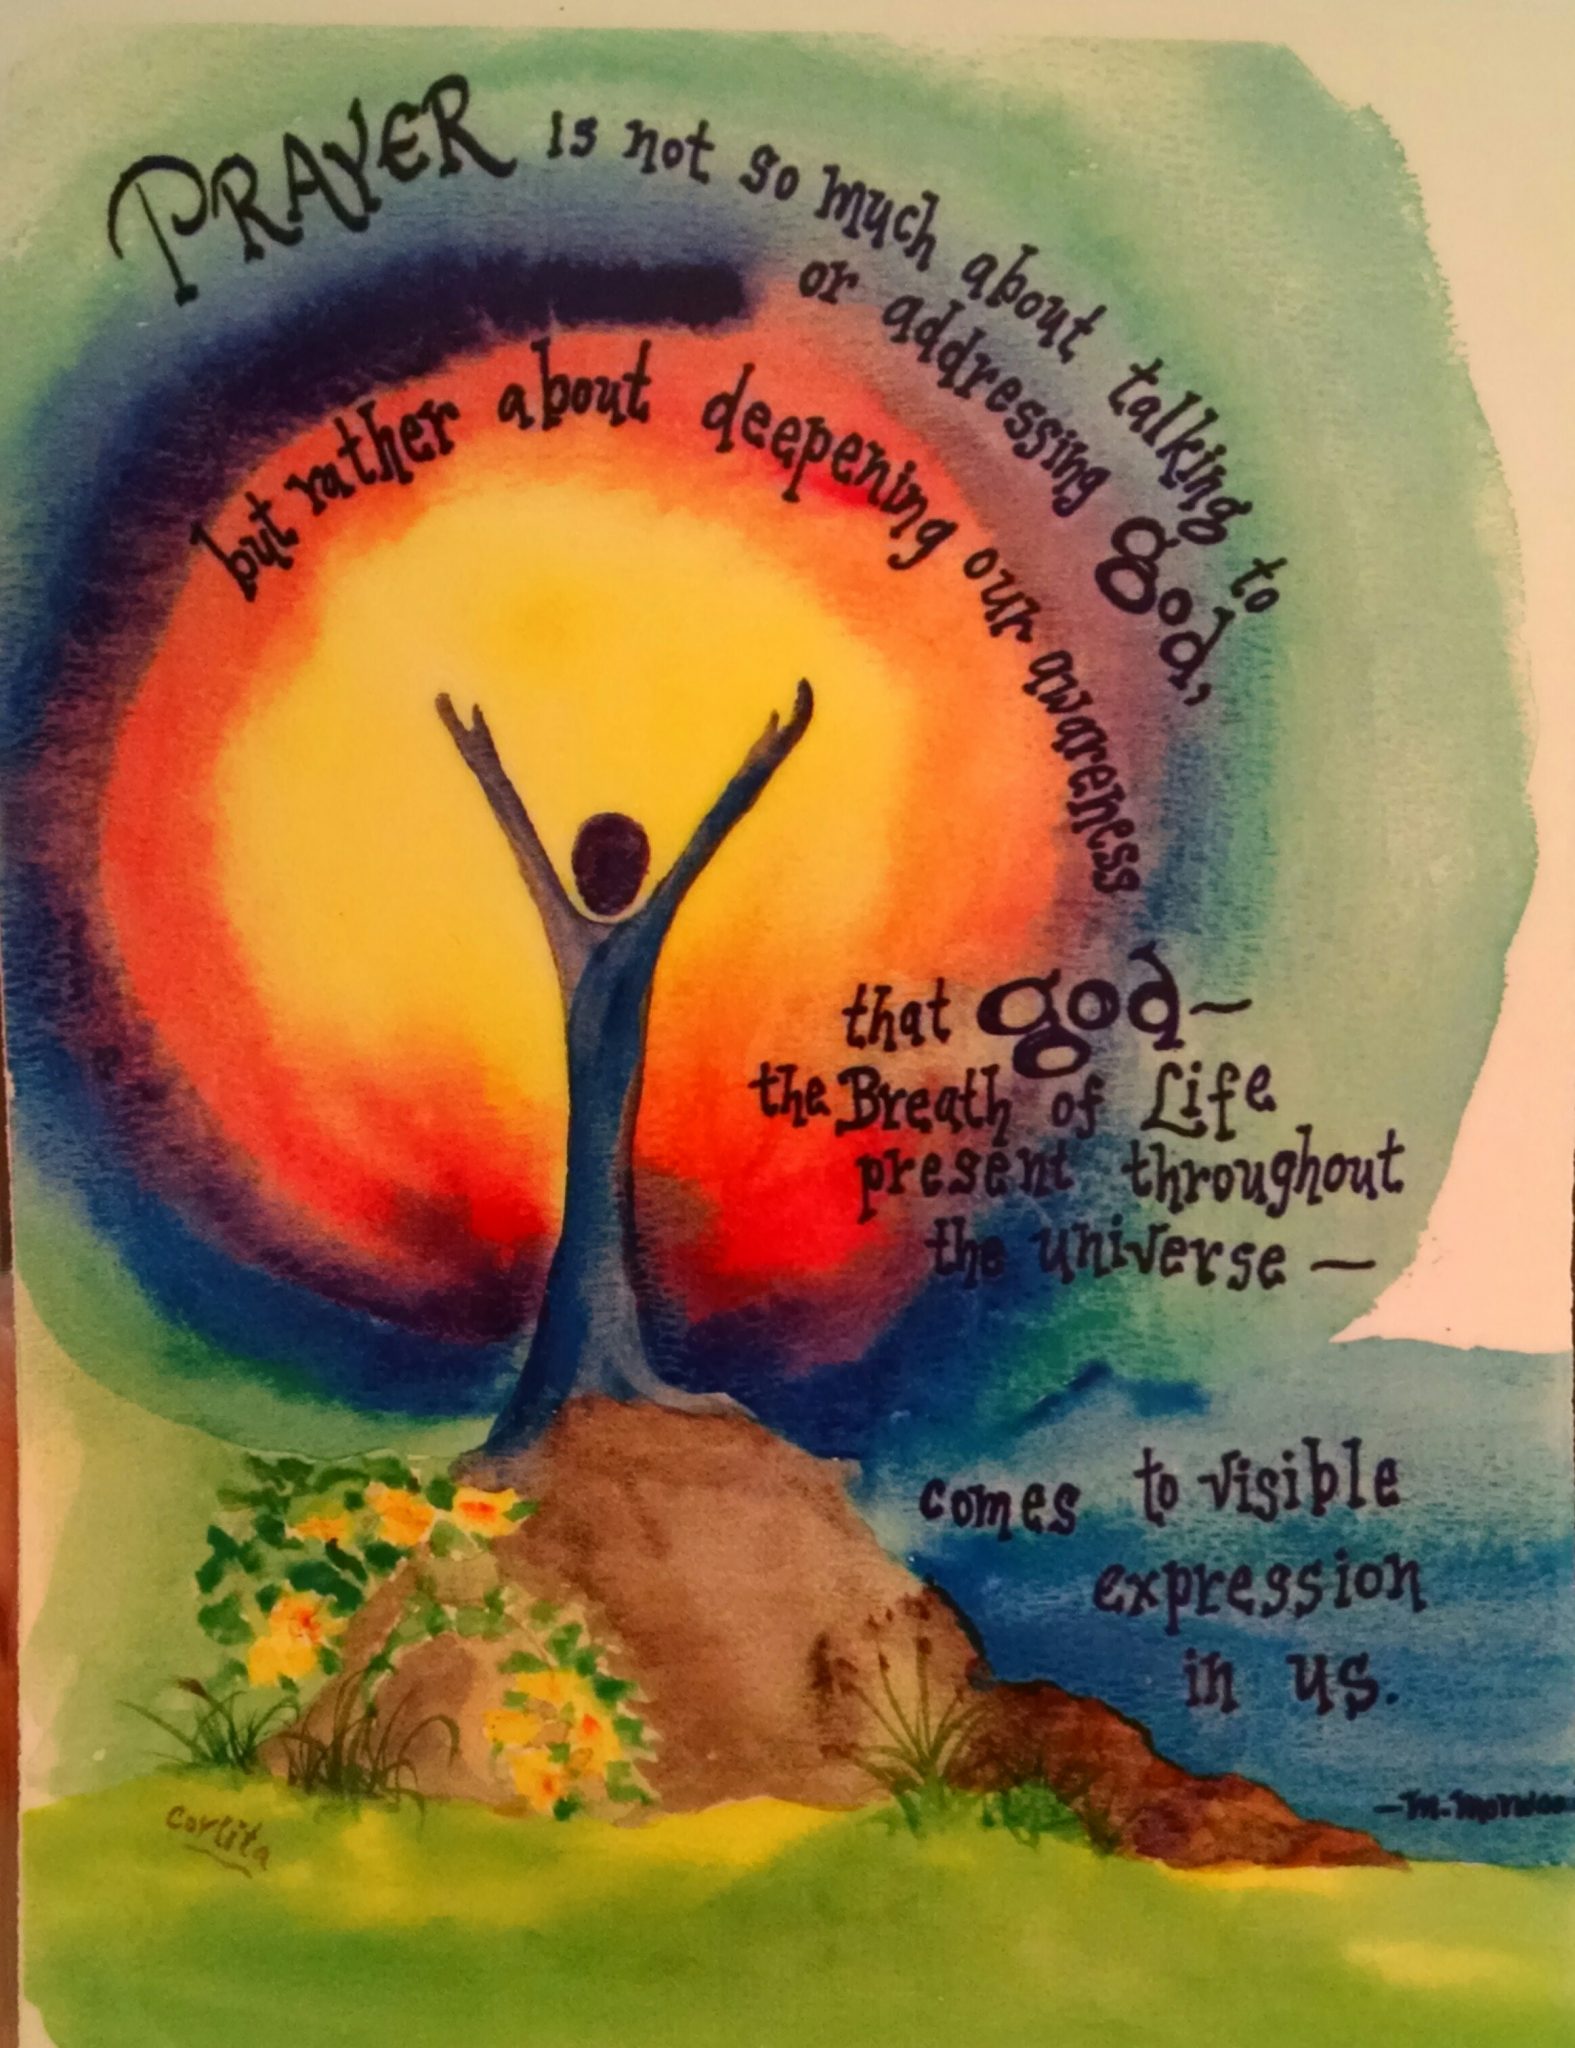 PRAYER is not so much about talking to
or addressing god,
but rather about deepening our awareness
that god~
the Breath of Life
present throughout
the universe —
comes to visible
expression
in us.
— m. morwoo
corlita